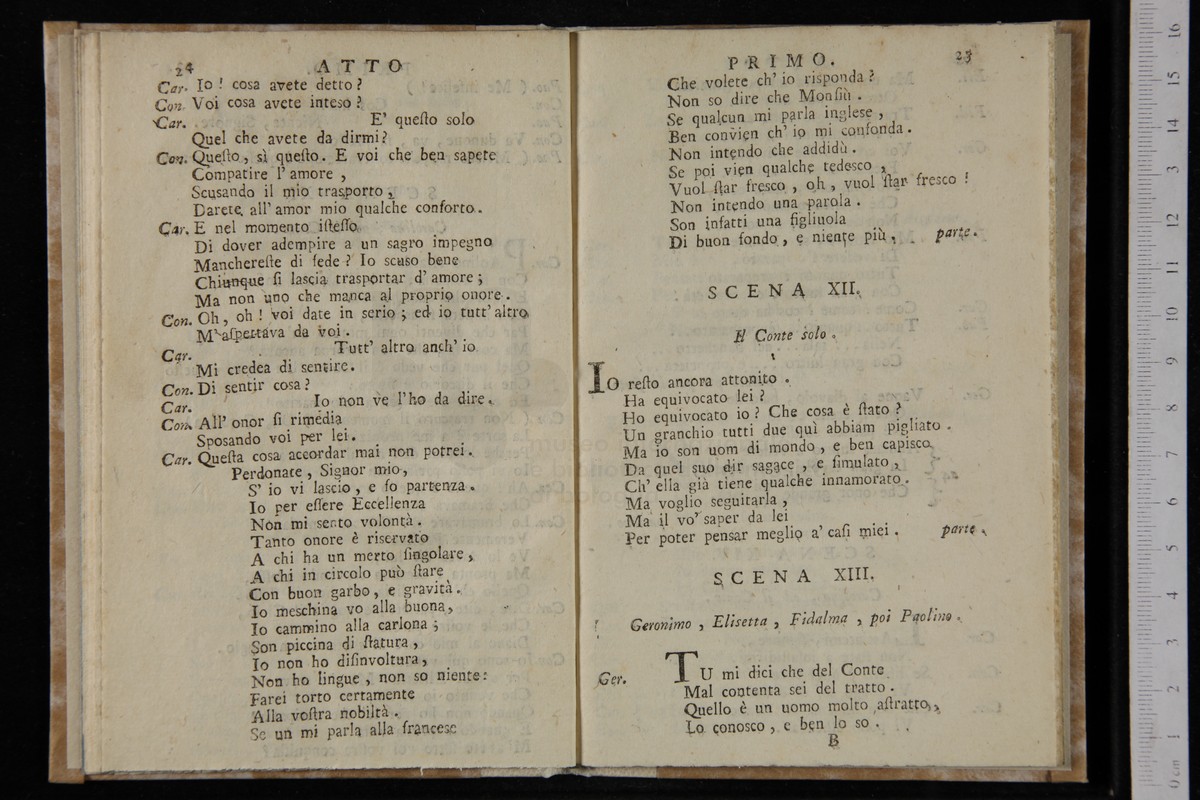 24 ATTO
Car. Io ! cosa avete detto ?
Con. Voi cosa avete inteso ?
Car. E' questo solo
Quel che avete da dirmi ?
Con. Questo , sì questo . E voi che ben sapete
Compatire l' amore ,
Scusando il mio trasporto ,
Darete all' amor mio qualche conforto .
Car. E nel momento istesso
Di dover adempire a un sagro impegno
Manchereste di fede ? Io scuso bene
Chiunque si lascia trasportar d' amore ;
Ma non uno che manca al proprio onore .
Con. Oh , oh ! voi date in serio ; ed io tutt' altro
M' aspettava da voi .
Car. Tutt' altro anch' io
Mi credea di sentire .
Con. Di sentir cosa ?
Car. Io non ve l' ho da dire .
Con. All' onor si rimedia
Sposando voi per lei .
Car. Questa cosa accordar mai non potrei .
Perdonate , Signor mio ,
S' io vi lascio , e fo partenza .
Io per essere Eccellenza
Non mi sento volontà .
Tanto onore è riservato
A chi ha un merto singolare ,
A chi in circolo può stare
Con buon garbo , e gravità .
Io meschina vo alla buona ,
Io cammino alla carlona ;
Son piccina di statura ,
Io non ho disinvoltura ,
Non ho lingue , non so niente :
Farei torto certamente
Alla vostra nobiltà .
Se un mi parla alla francese
PRIMO. 23
Che volete ch' io risponda ?
Non so dire che Monsiù .
Se qualcun mi parla inglese ,
Ben convien ch' io mi confonda .
Non intendo che addidù .
Se poi vien qualche tedesco ,
Vuol star fresco , oh , vuol star fresco !
Non intendo una parola .
Son infatti una figliuola
Di buon fondo , e niente più . parte .
SCENA XII.
Il Conte solo .
Io resto ancora attonito .
Ha equivocato lei ?
Ho equivocato io ? Che cosa è stato ?
Un granchio tutti due quì abbiam pigliato .
Ma io son uom di mondo , e ben capisco
Da quel suo dir sagace , e simulato ,
Ch' ella già tiene qualche innamorato .
Ma voglio seguitarla ,
Ma il vo' saper da lei
Per poter pensar meglio a' casi miei . parte .
SCENA XIII.
Geronimo , Elisetta , Fidalma , poi Paolino .
Ger. TU mi dici che del Conte
Mal contenta sei del tratto .
Quello è un uomo molto astratto ,
Lo conosco , e ben lo so .
B
16
15
14
13
12
11
10
9
8
7
6
5
4
3
2
1
0 cm